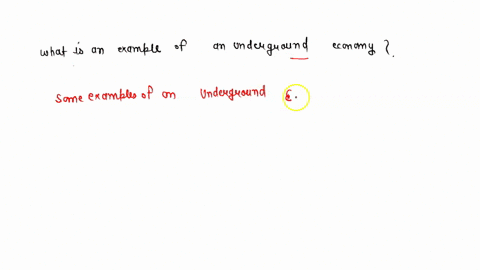 what is an example of an underground economy ?
Some examples of an Underground E.